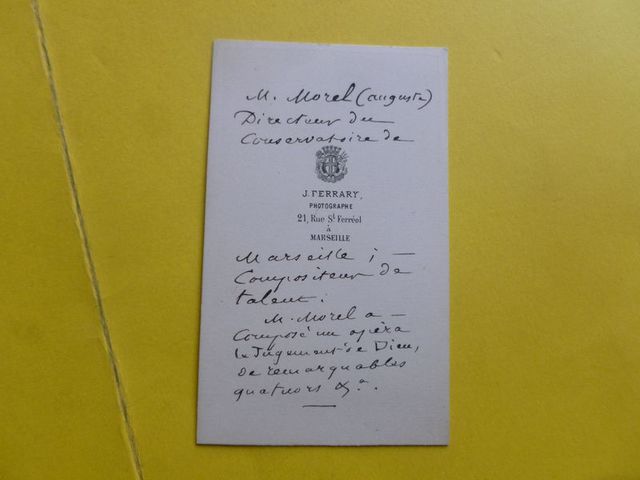 M. Morel (auguste)
Directeur du
Conservatoire de
J. FERRARY,
PHOTOGRAPHE
21, Rue St Ferréol
à
MARSEILLE
Marseille ; —
Compositeur de
talent :
M. Morel a —
Composé un opéra
le Jugement de Dieu,
de remarquables
quatuors &a.